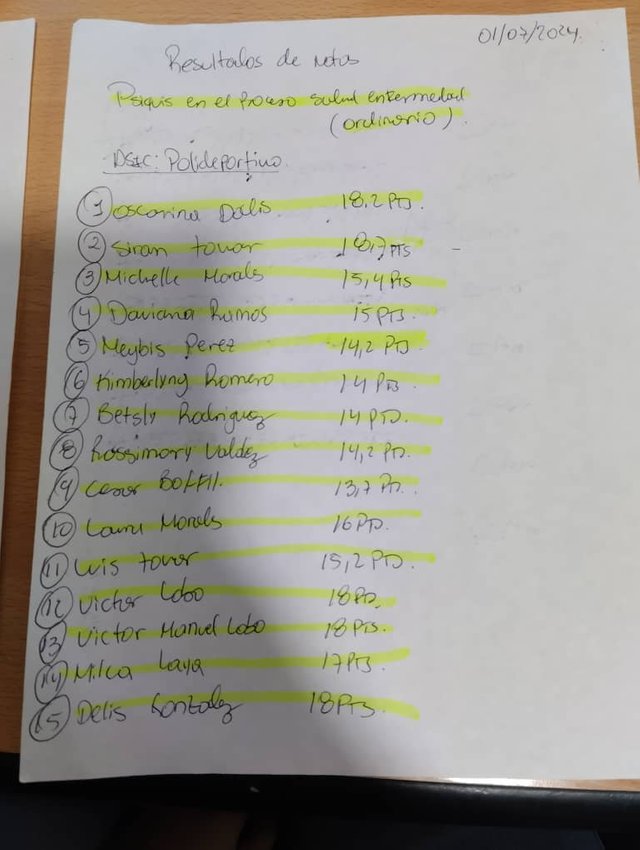 01/07/2024
Resultados de notas
Psiquis en el Proceso salud enfermedad
(ordinario).
DSIC: Polideportivo.
1 Oscarina Dalis. 18.2 PTS.
2 Siran tovar 18,7 PTS
3 Michelle Morales 15,4 PTS
4 Daviana Ramos 15 PTS
5 Meybis Perez 14,2 PTS
6 Kimberlyng Romero 14 PTS
7 Betsly Rodriguez 14 PTS.
8 Rossimary Valdez 14,2 PTS.
9 Cesar Boffil. 13,7 PTS.
10 Laura Morales 16 PTS.
11 Luis tovar 15,2 PTS.
12 Victor Lobo 18 PTS.
13 Victor Manuel Lobo 18 PTS.
14 Milca Laya 17 PTS.
15 Delis Gonzalez 18 PTS.